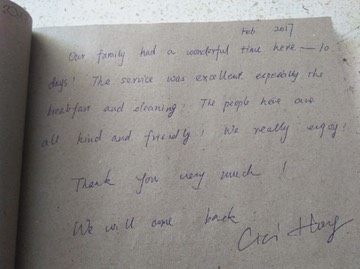 Feb 2017
Our family had a wonderful time here — 10
days! The service was excellent especially the
breakfast and cleaning! The people here are
all kind and friendly! We really enjoy!
Thank you very much!
We will come back